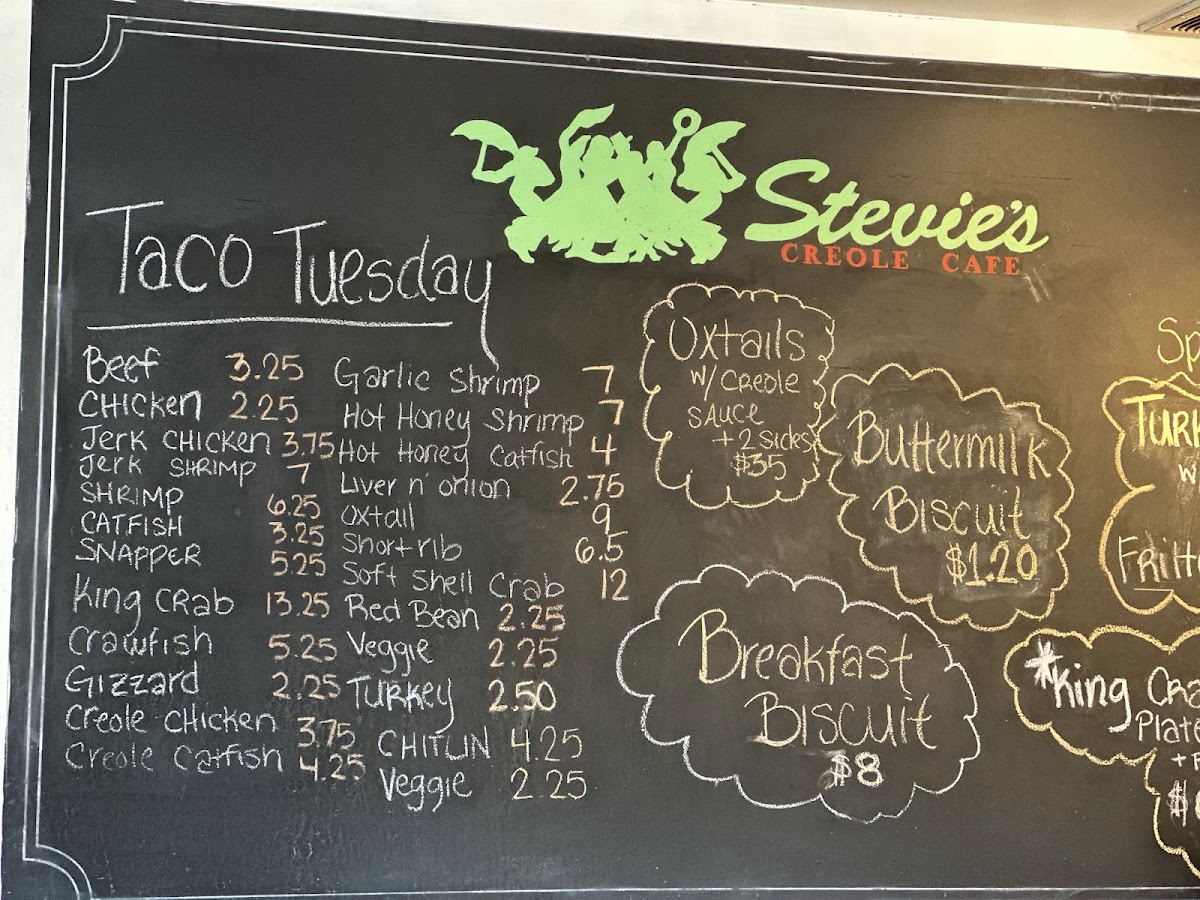 Stevie's
CREOLE CAFE
Taco Tuesday
Beef 3.25
CHICKEN 2.25
Jerk CHICKEN 3.75
Jerk SHRIMP 7
SHRIMP 6.25
CATFISH 3.25
SNAPPER 5.25
King CRAB 13.25
Crawfish 5.25
GIZZARD 2.25
Creole CHICKEN 3.75
Creole Catfish 4.25
Garlic Shrimp 7
Hot Honey Shrimp 7
Hot Honey Catfish 4
Liver n' onion 2.75
oxtail 9
Short rib 6.5
Soft Shell Crab 12
Red Bean 2.25
Veggie 2.25
TURKEY 2.50
CHITLIN 4.25
Veggie 2.25
Oxtails
w/ CREOLE
SAUCE
+ 2 sides
$35
Buttermilk
Biscuit
$1.20
Breakfast
Biscuit
$8
Sp
TURK
w
Fritt
*King Cra
Plate
+ F
$